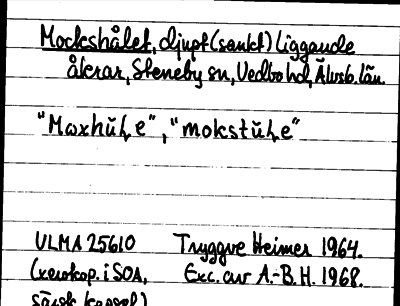 Mockshålet, djupt (sankt) liggande
åkrar, Steneby sn, Vedbo hd, Älvsb. län.
"Mɷxhūɫe", "mokstūɫe"
ULMA 25610 Tryggve Heimer 1964.
(xerokop. i SOA, Exc. av A.-B. H. 1968.
särsk. kapsel)